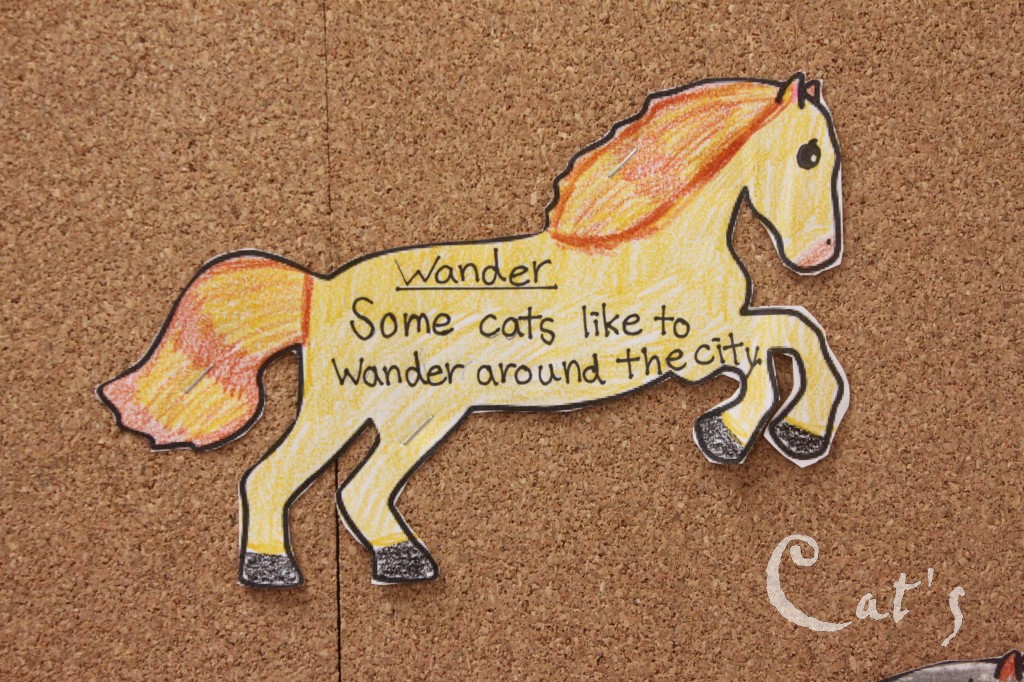 Wander
Some cats like to
Wander around the city.
Cat's